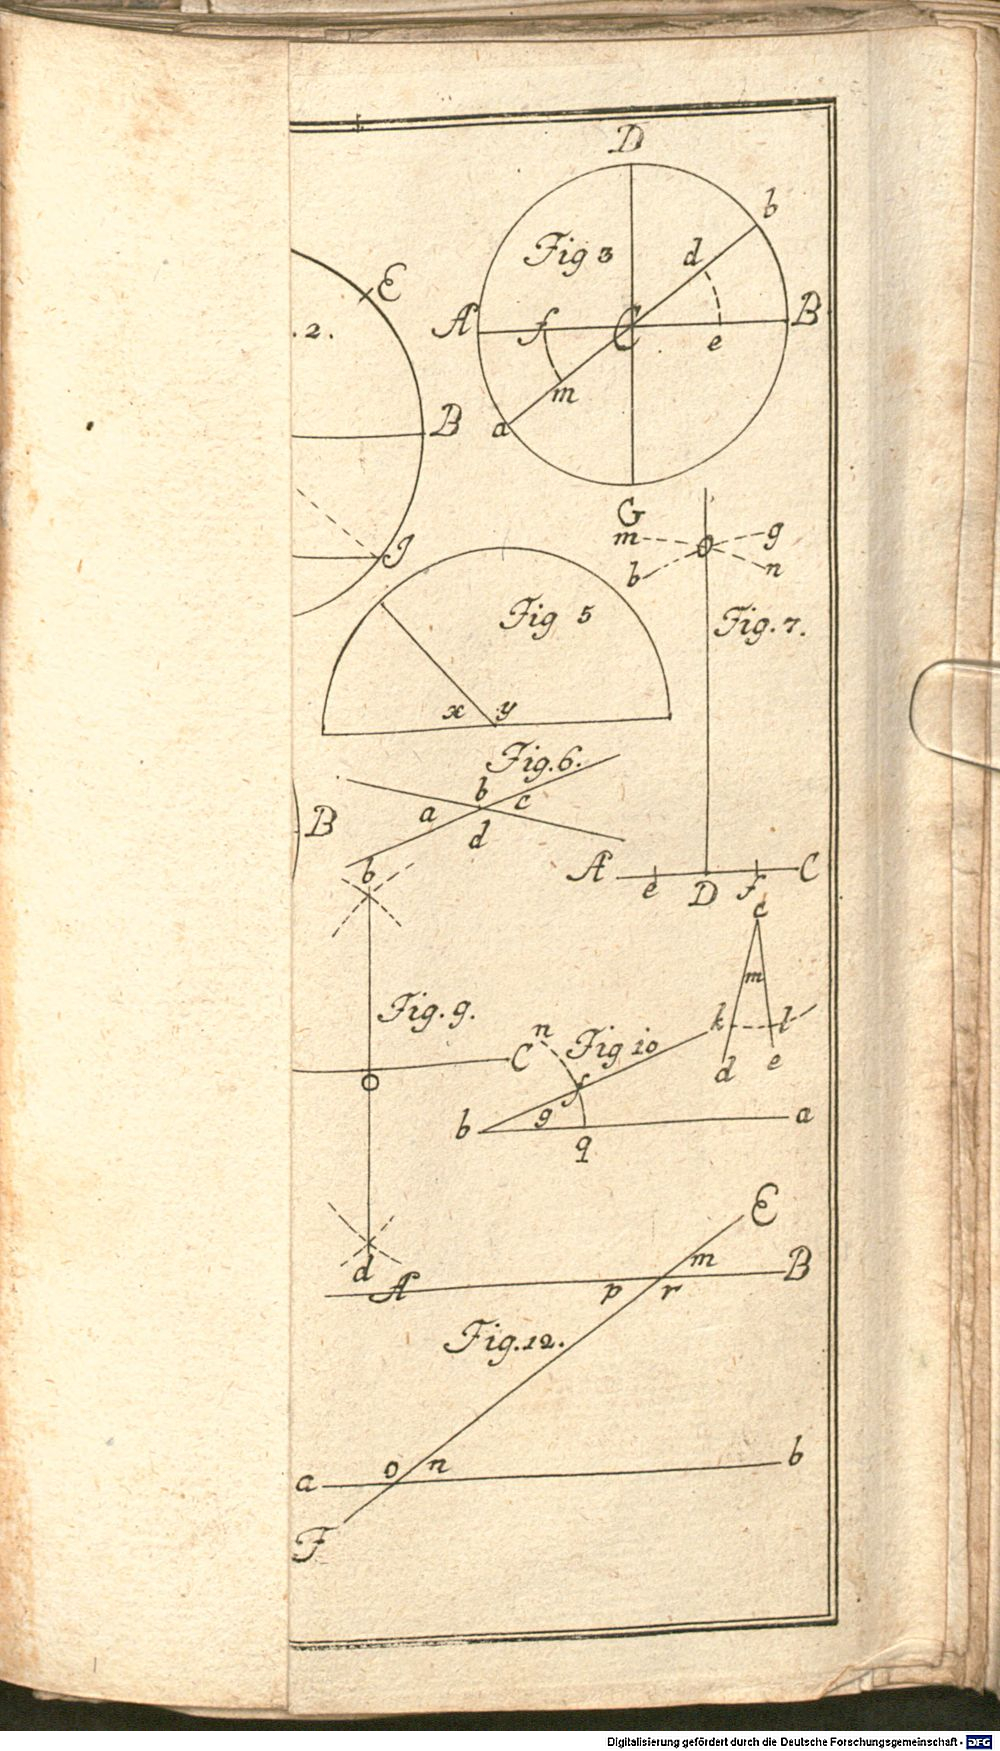 D
b
Fig 3
d
E
A
f
C
B
.2.
e
m
B
a
G
m
O
g
J
b
n
Fig 5
Fig. 7.
x y
Fig. 6.
b
a
c
B
d
b
A
e
D
f
C
c
m
Fig. 9.
n
Fig 10
k
l
C
f
d
e
O
b
g
a
q
E
m
B
d
A
p
r
Fig. 12.
o
n
b
a
F
Digitalisierung gefördert durch die Deutsche Forschungsgemeinschaft - DFG